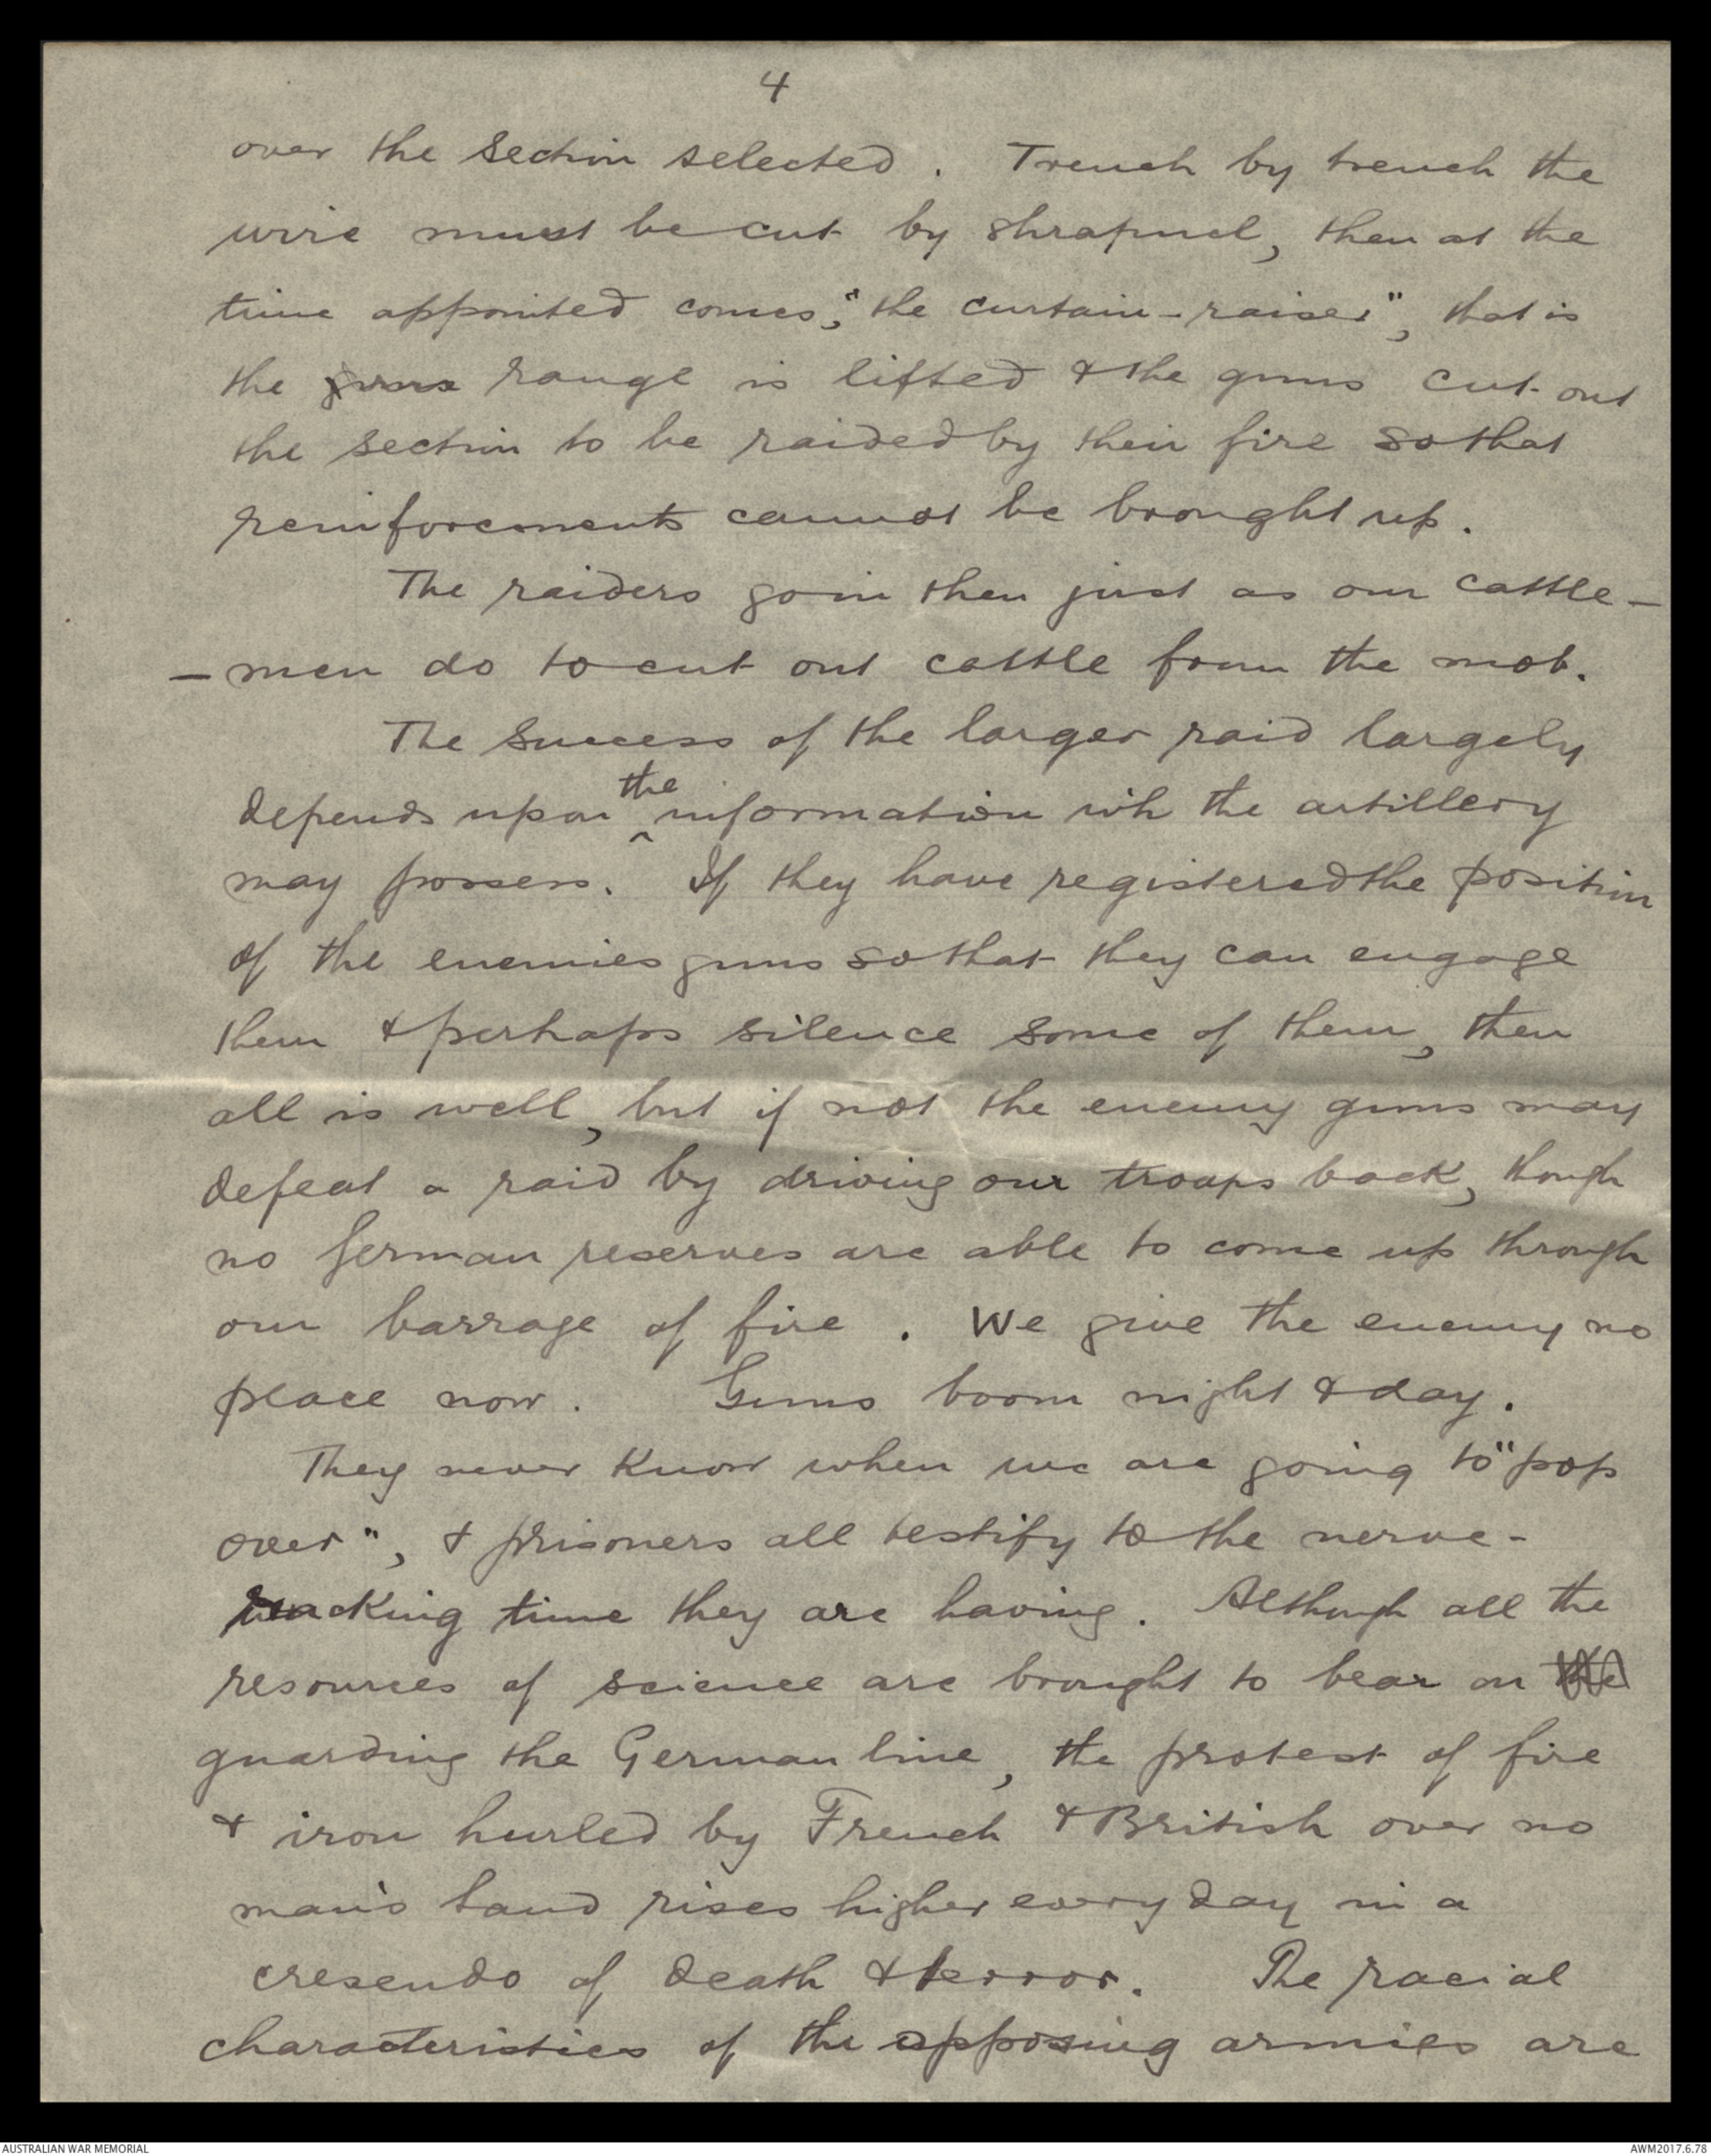 4
over the section selected. Trench by trench the
wire must be cut by shrapnel, then at the
time appointed comes, "the curtain-raiser", that is
the guns range is lifted & the guns cut out
the section to be raided by their fire so that
reinforcements cannot be brought up.
The raiders go in then just as our cattle-
-men do to cut out cattle from the mob.
The success of the larger raid largely
depends upon the information wh the artillery
may possess. If they have registered the position
of the enemies guns so that they can engage
them & perhaps silence some of them, then
all is well, but if not the enemy guns may
defeat a raid by driving our troops back, though
no German reserves are able to come up through
our barrage of fire. We give the enemy no
peace now. Guns boom night & day.
They never know when we are going to "pop
over", & prisoners all testify to the nerve-
racking time they are having. Although all the
resources of science are brought to bear on the
guarding the German line, the protest of fire
& iron hurled by French & British over no
man's land rises higher every day in a
cresendo of death & terror. The racial
characteristics of the opposing armies are
AUSTRALIAN WAR MEMORIAL
AWM2017.6.78